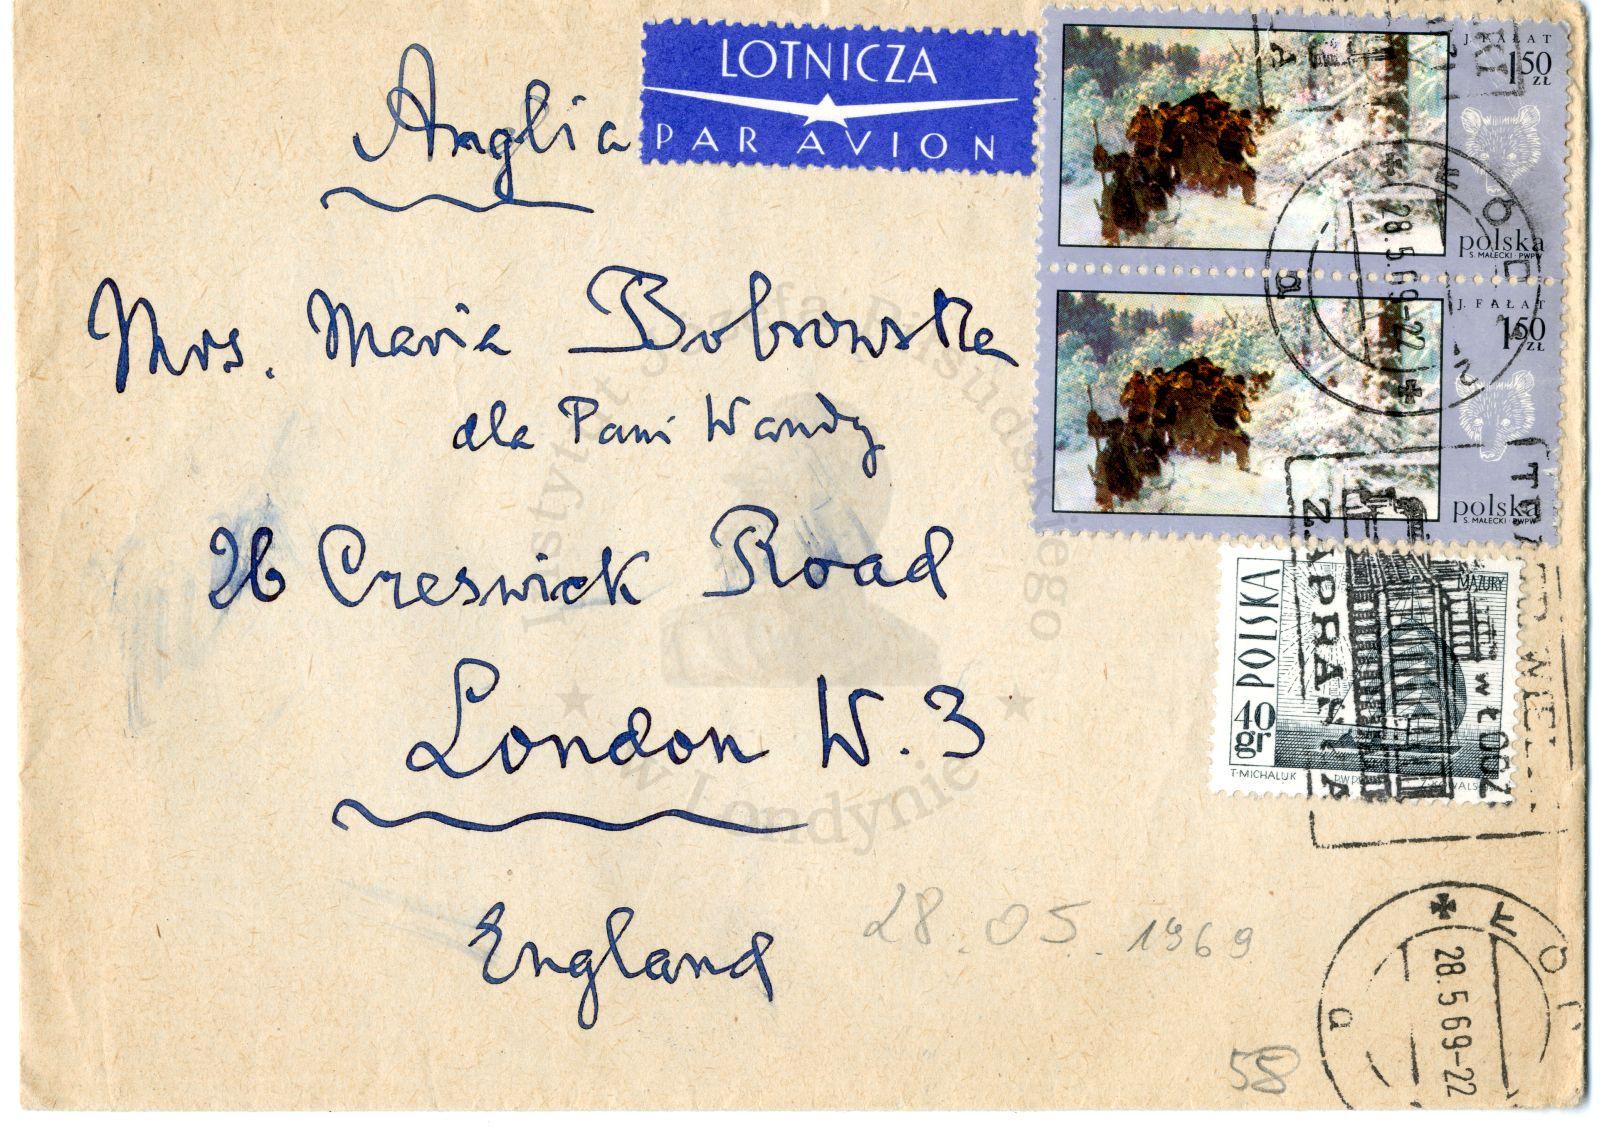 LOTNICZA
PAR AVION
Anglia
Mrs. Maria Bobrowska
dla Pani Wandy
26 Creswick Road
London W. 3
England
28.05.1969
58
J. FAŁAT
1,50
ZŁ
polska
S. MAŁECKI · PWPW
J. FAŁAT
1,50
ZŁ
polska
S. MAŁECKI · PWPW
POLSKA
MAZURY
40
gr
T·MICHALUK
28.5.69-22
ZAPRASZA
28.5.69-22
Instytut Józefa Piłsudskiego
w Londynie